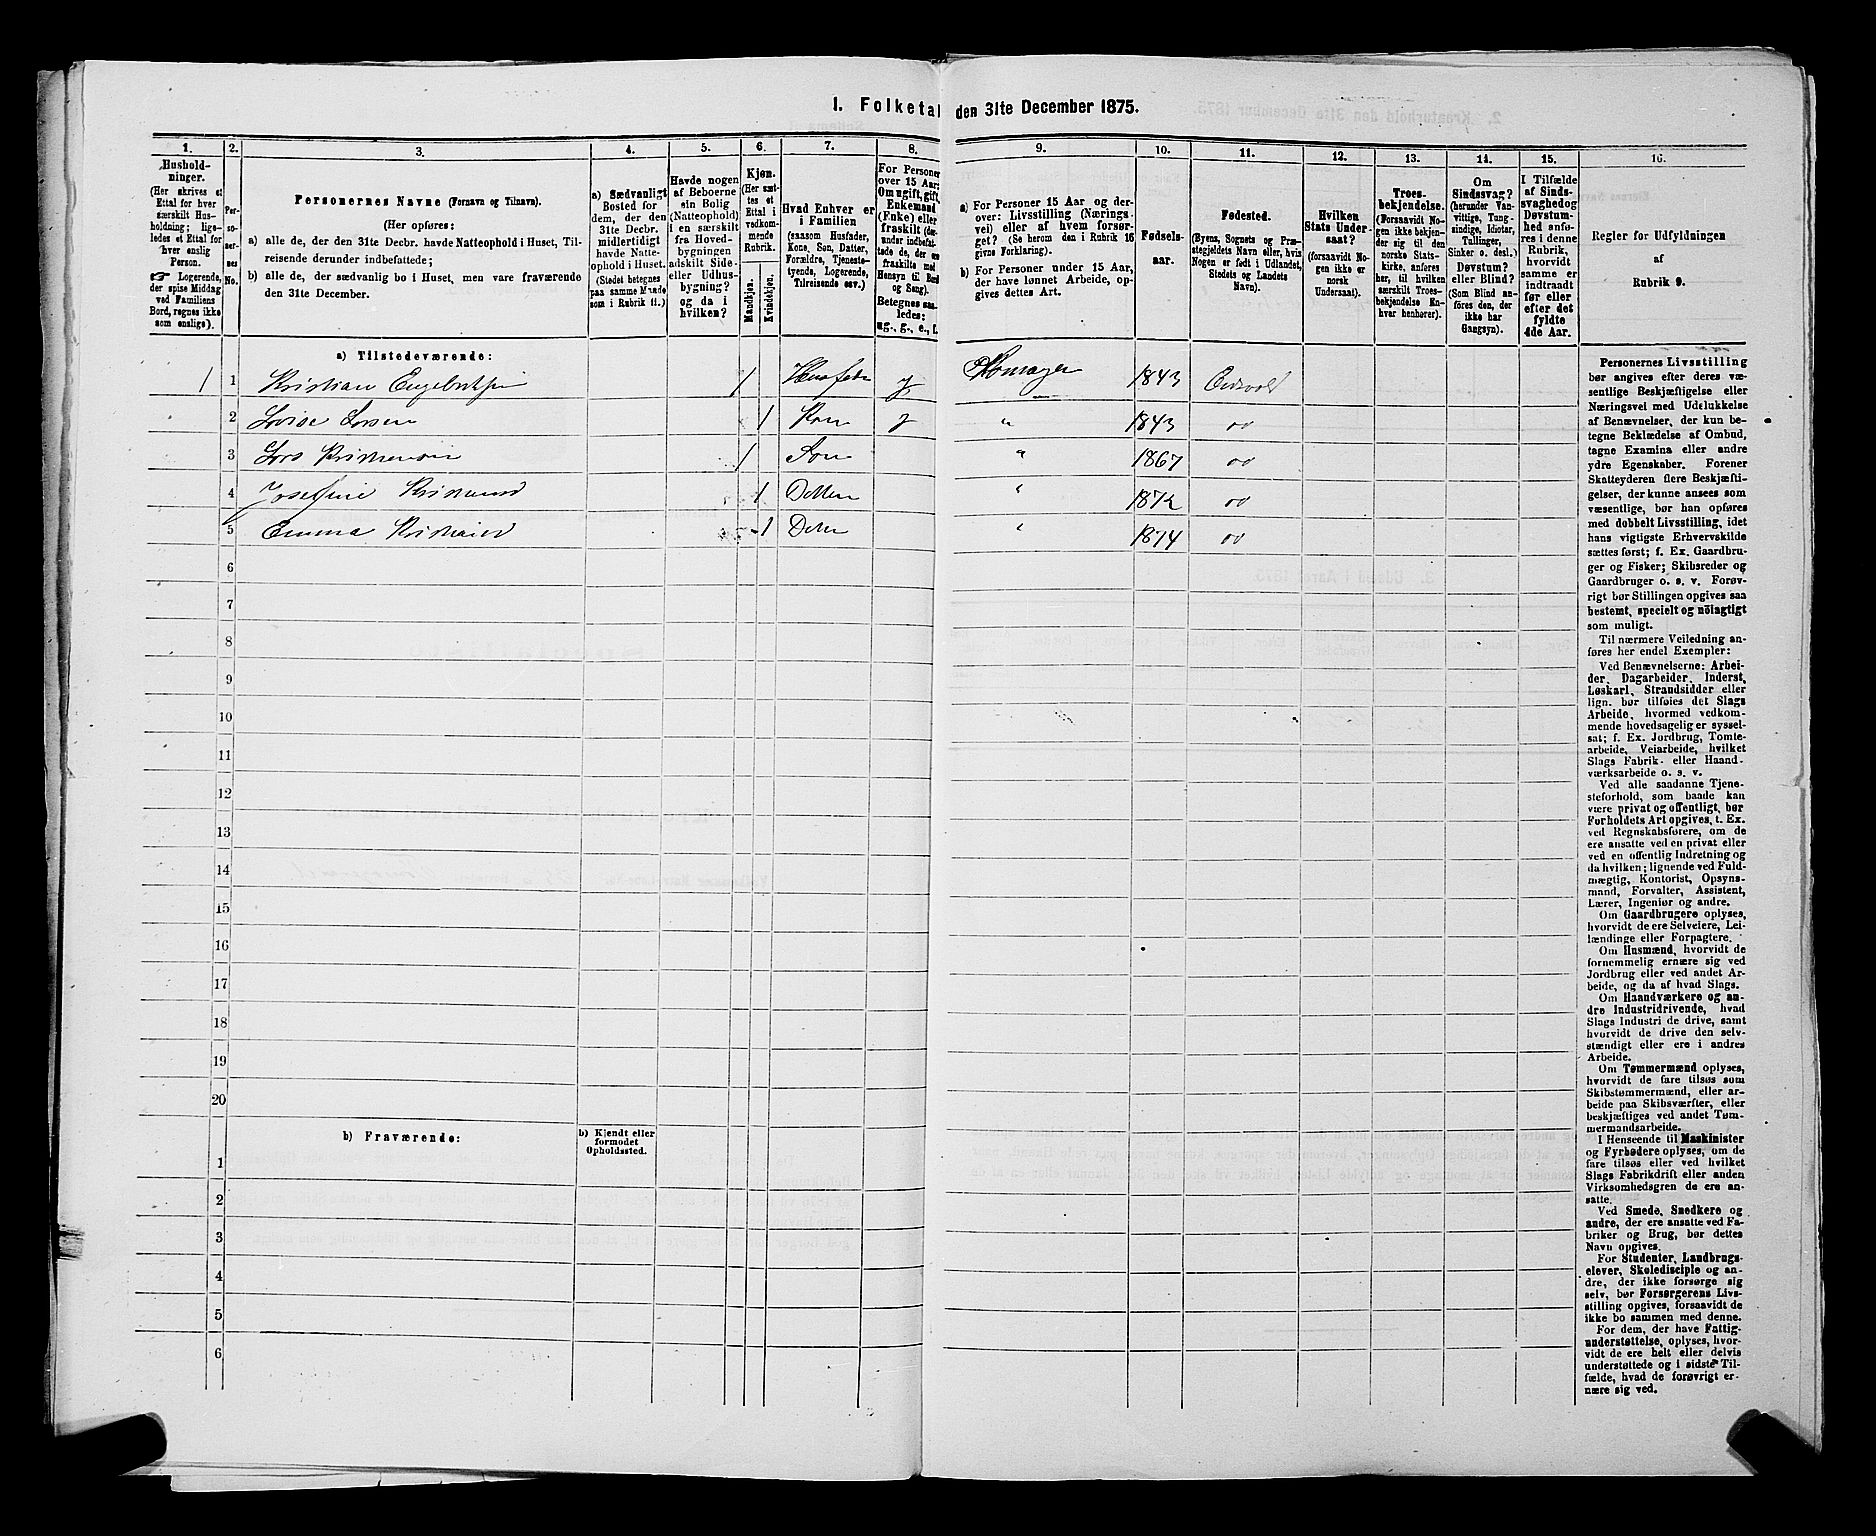 1. Folketal den 31te December 1875.
1.
Husholdninger.
(Her skrives et Ettal for hver særskilt Husholdning; ligeledes et Ettal for hver enslig Person.
☞ Logerende, der spise Middag ved Familiens Bord, regnes ikke som enslige).
2.
Personernes No.
3.
Personernes Navne (Fornavn og Tilnavn).
(Her opføres:
a) alle de, der den 31te Decbr. havde Natteophold i Huset, Tilreisende derunder indbefattede;
b) alle de, der sædvanlig bo i Huset, men vare fraværende den 31te December.
4.
a) Sædvanligt Bosted for dem, der den 31te Decbr. midlertidigt havde Natteophold i Huset.
(Stedet betegnes paa samme Maade som i Rubrik 11.)
5.
Havde nogen af Beboerne ein Bolig (Natteophold) i en særskilt fra Hovedbygningen adskilt Side- eller Udhusbygning? og da i hvilken?
6.
Kjøn.
(Her sættes et Ettal i vedkommende Rubrik.
Mandkjøn.
Kvindekjøn.
7.
Hvad Enhver er i Familien
(saasom Husfader, Kone, Søn, Datter, Forældre, Tjenestetyende, Logerende, Tilreisende osv.)
8.
For Personer over 15 Aar: Om ugift, gift, Enkemand (Enke) eller fraskilt
Betegnes saaledes:
ug., g., e., f.
9.
a) For Personer 15 Aar og derover: Livsstilling (Næringsvei) eller af hvem forsørget? (Se herom den i Rubrik 16 givne Forklaring).
b) For Personer under 15 Aar, der have lønnet Arbeide, opgives dettes Art.
10.
Fødselsaar.
11.
Fødested.
(Byens, Sognets og Præstegjeldets Navn eller, hvis Nogen er født i Udlandet, Stedets og Landets Navn).
12.
Hvilken Stats Undersaat?
(forsaavidt Nogen ikke er norsk Undersaat).
13.
Troesbekjendelse.
(Forsaavidt Nogen ikke bekjender sig til den norske Statskirke, anføres her, til hvilken særskilt Troesbekjendelse Enhver henhører).
14.
Om Sindssvag?
(herunder Vanvittige, Tungsindige, Idioter, Tullinger, Sinker o. desl.)
Døvstum? eller Blind?
(Som Blind anføres den, der ikke har Gangsyn).
15.
I Tilfælde af Sindssvaghed og Døvstumhed anføres i denne Rubrik, hvorvidt samme er indtraadt før eller efter det fyldte 4de Aar.
16.
Regler for Udfyldningen af Rubrik 9.
a) Tilstedeværende:
1 1 Kristian Engebretsen 1 g 1843 Eidsvold
2 Lovise Larsen 1 Kone g " 1843 do
3 Lars Kristiansen 1 Søn " 1867 do
4 Josefine Kristiansd 1 Datter " 1872 do
5 Emma Kristiansd 1 Datter " 1874 do
6
7
8
9
10
11
12
13
14
15
16
17
18
19
20
b) Fraværende:
b) Kjendt eller formodet Opholdssted.
1
2
3
4
5
6
Personernes Livsstilling
bør angives efter deres væ-
sentlige Beskjæftigelse eller
Næringsvei med Udelukkelse
af Benævnelser, der kun be-
tegne Beklædelse af Ombud,
tagne Examina eller andre
ydre Egenskaber. Forener
Skatteyderen flere Beskjæfti-
gelser, der kunne ansees som
væsentlige, bør han opføres
med dobbelt Livsstilling, idet
hans vigtigste Erhvervskilde
sættes først; f. Ex. Gaardbru-
ger og Fisker; Skibsreder og
Gaardbruger o. s. v. Forøv-
rigt bør Stillingen opgives saa
bestemt, specielt og nöiagtigt
som muligt.
Til nærmere Veiledning an-
føres her endel Exempler:
Ved Benævnelserne: Arbei-
der, Dagarbeider, Inderst,
Løskarl, Strandsidder eller
lign. bør tilføies det Slags
Arbeide, hvormed vedkom-
mende hovedsagelig er syssel-
sat; f. Ex. Jordbrug, Tomte-
arbeide, Veiarbeide, hvilket
Slags Fabrik- eller Haand-
værksarbeide o. s. v.
Ved alle saadanne Tjene-
steforhold, som baade kan
være privat og offentligt, bør
Forholdets Art opgives, t. Ex.
ved Regnskabsførere, om de
ere ansatte ved en privat eller
ved en offentlig Indretning og
da hvilken; lignende ved Fuld-
mægtig, Kontorist, Opsyns-
mand, Forvalter, Assistent,
Lærer, Ingeniør og andre.
Om Gaardbrugere oplyses,
hvorvidt de ere Selveiere, Lei-
lændinge eller Forpagtere.
Om Husmænd, hvorvidt de
fornemmelig ernære sig ved
Jordbrug eller ved andet Ar-
beide, og da af hvad Slags.
Om Haandværkere og an-
dre Industridrivende, hvad
Slags Industri de drive, samt
hvorvidt de drive den selv-
stændigt eller ere i andres
Arbeide.
Om Tømmermænd oplyses,
hvorvidt de fare tilsøs som
Skibstømmermænd, eller ar-
beide paa Skibsværfter, eller
beskjæftiges ved andet Tøm-
mermandsarbeide.
I Henseende til Maskinister
og Fyrbødere oplyses, om de
fare tilsøs eller ved hvilket
Slags Fabrikdrift eller anden
Virksomhedsgren de ere an-
satte.
Ved Smede, Snedkere og
andre, der ere ansatte ved Fa-
briker og Brug, bør dettes
Navn opgives.
For Studenter, Landbrugs-
elever, Skoledisciple og an-
dre, der ikke forsørge sig
selv, bør Forsørgerens Livs-
stilling opgives, forsaavidt de
ikke bo sammen med denne.
For dem, der have Fattig-
understøttelse, oplyses, hvor-
vidt de ere helt eller delvis
understøttede og i sidste Til-
fælde, hvad de forøvrigt er-
nære sig ved.